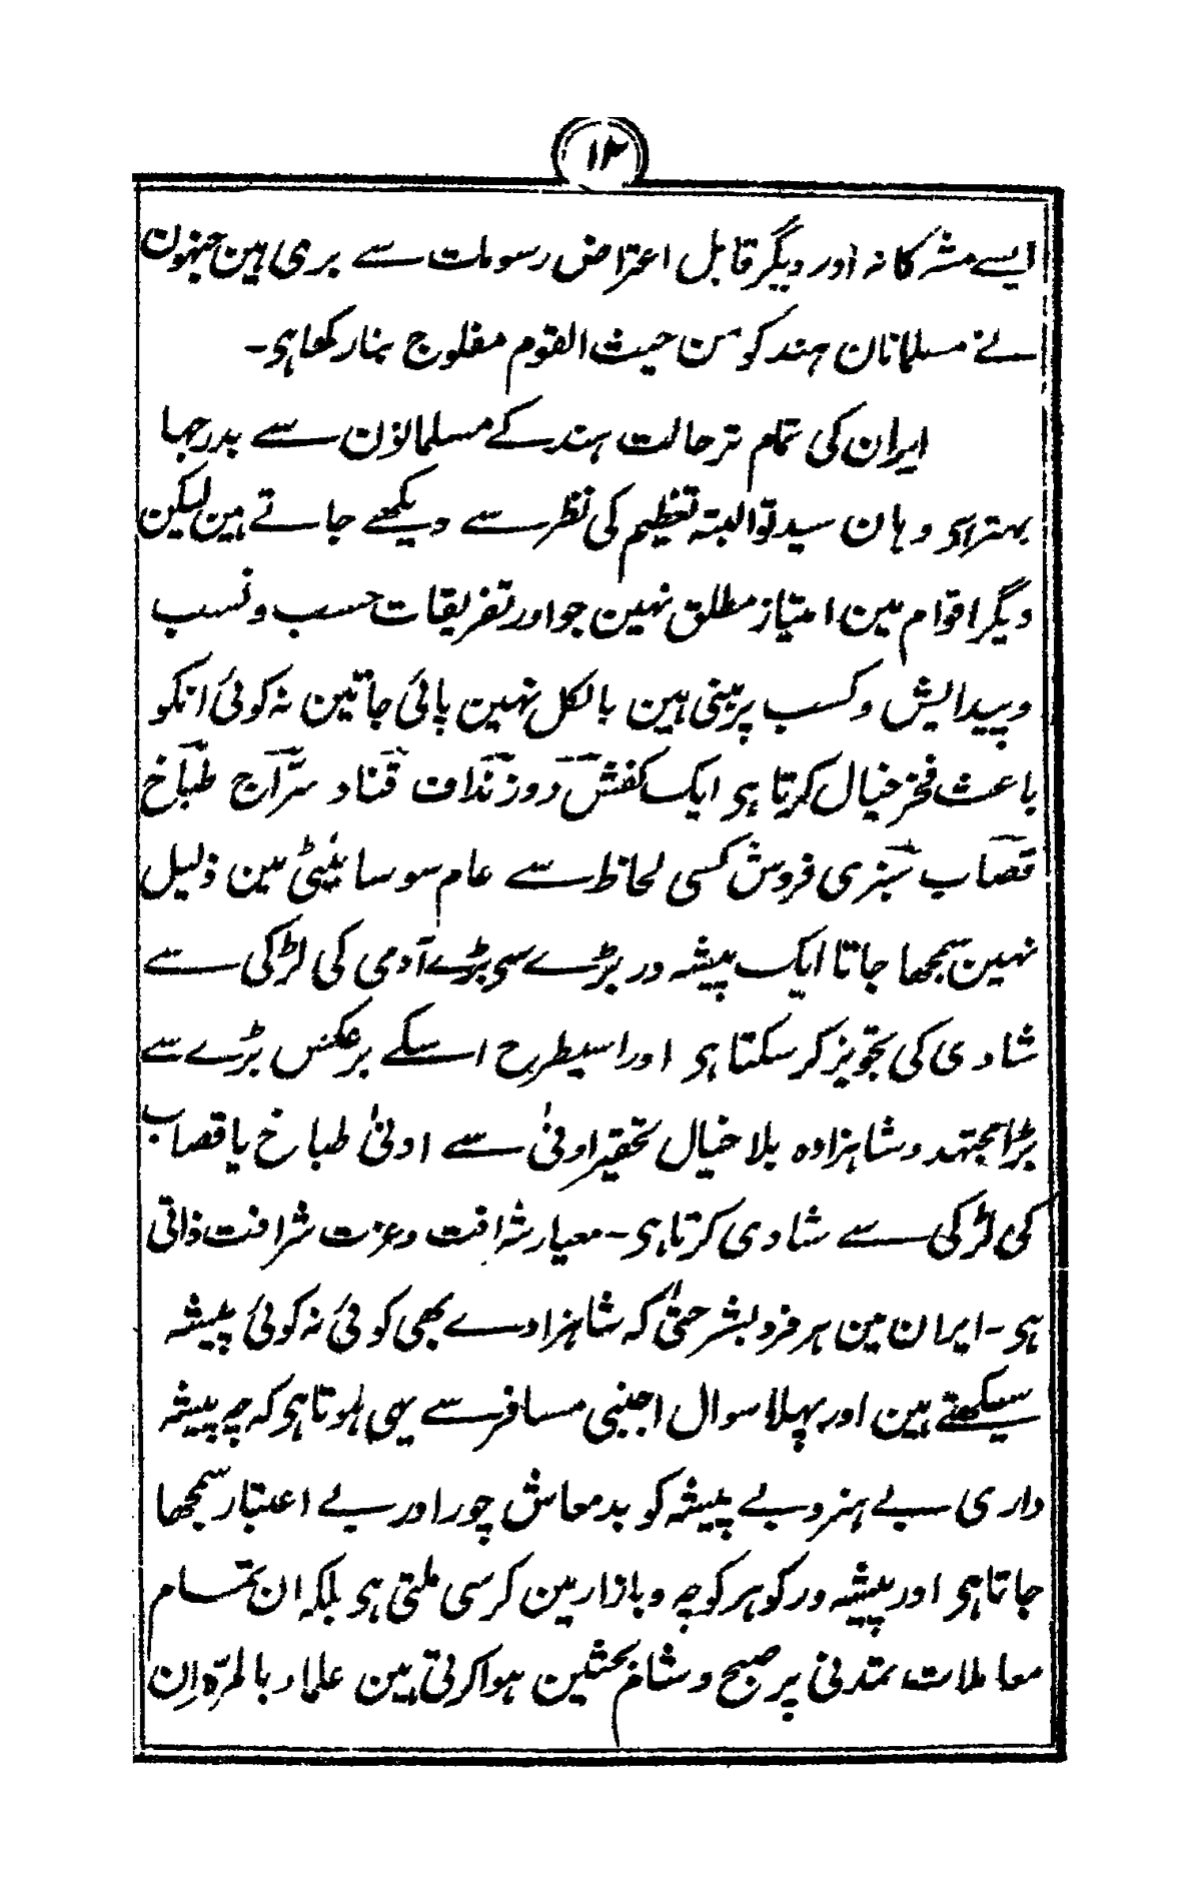 ۱۲
ایسے مشرکانہ اور دیگر قابل اعتراض رسومات سے بری ہین جنہون
نے مسلمانان ہند کو من حیث القوم مفلوج بنا رکھا ہی۔
ایران کی تمام تر حالت ہند کے مسلمانون سے بدرجہا
بہتر ہی وہان سید تو البتہ تعظیم کی نظر سے دیکھے جاتے ہین لیکن
دیگر اقوام مین امتیاز مطلق نہین جو اور تفریقات حسب و نسب
و پیدایش و کسب پر مبنی ہین بالکل نہین پائی جاتین نہ کوئی انکو
باعث فخر خیال کرتا ہی ایک کفش دوز ندّاف قناد سرّاج طبّاخ
قصاب سبزی فروش کسی لحاظ سے عام سوسایٹی مین ذلیل
نہین سمجھا جاتا ایک پیشہ ور بڑے سی بڑے آدمی کی لڑکی سے
شادی کی تجویز کر سکتا ہی اور اسیطرح اسکے برعکس بڑے سے
بڑا مجتہد و شاہزادہ بلا خیال تحقیر ادنیٰ سے ادنیٰ طباخ یا قصاب
کی لڑکی سے شادی کرتا ہی۔ معیار شرافت و عزت شرافت ذاتی
ہی۔ ایران مین ہر فرد بشر حتیٰ کہ شاہزادے بھی کوئی نہ کوئی پیشہ
سیکھتے ہین اور پہلا سوال اجنبی مسافر سے یہی ہوتا ہی کہ چہ پیشہ
داری بے ہنر و بے پیشہ کو بدمعاش چور اور بے اعتبار سمجھا
جاتا ہی اور پیشہ ور کو ہر کوچہ و بازار مین کرسی ملتی ہی بلکہ ان تمام
معاملات تمدنی پر صبح و شام بحثین ہوا کرتی ہین علماء بالمرّہ اِن